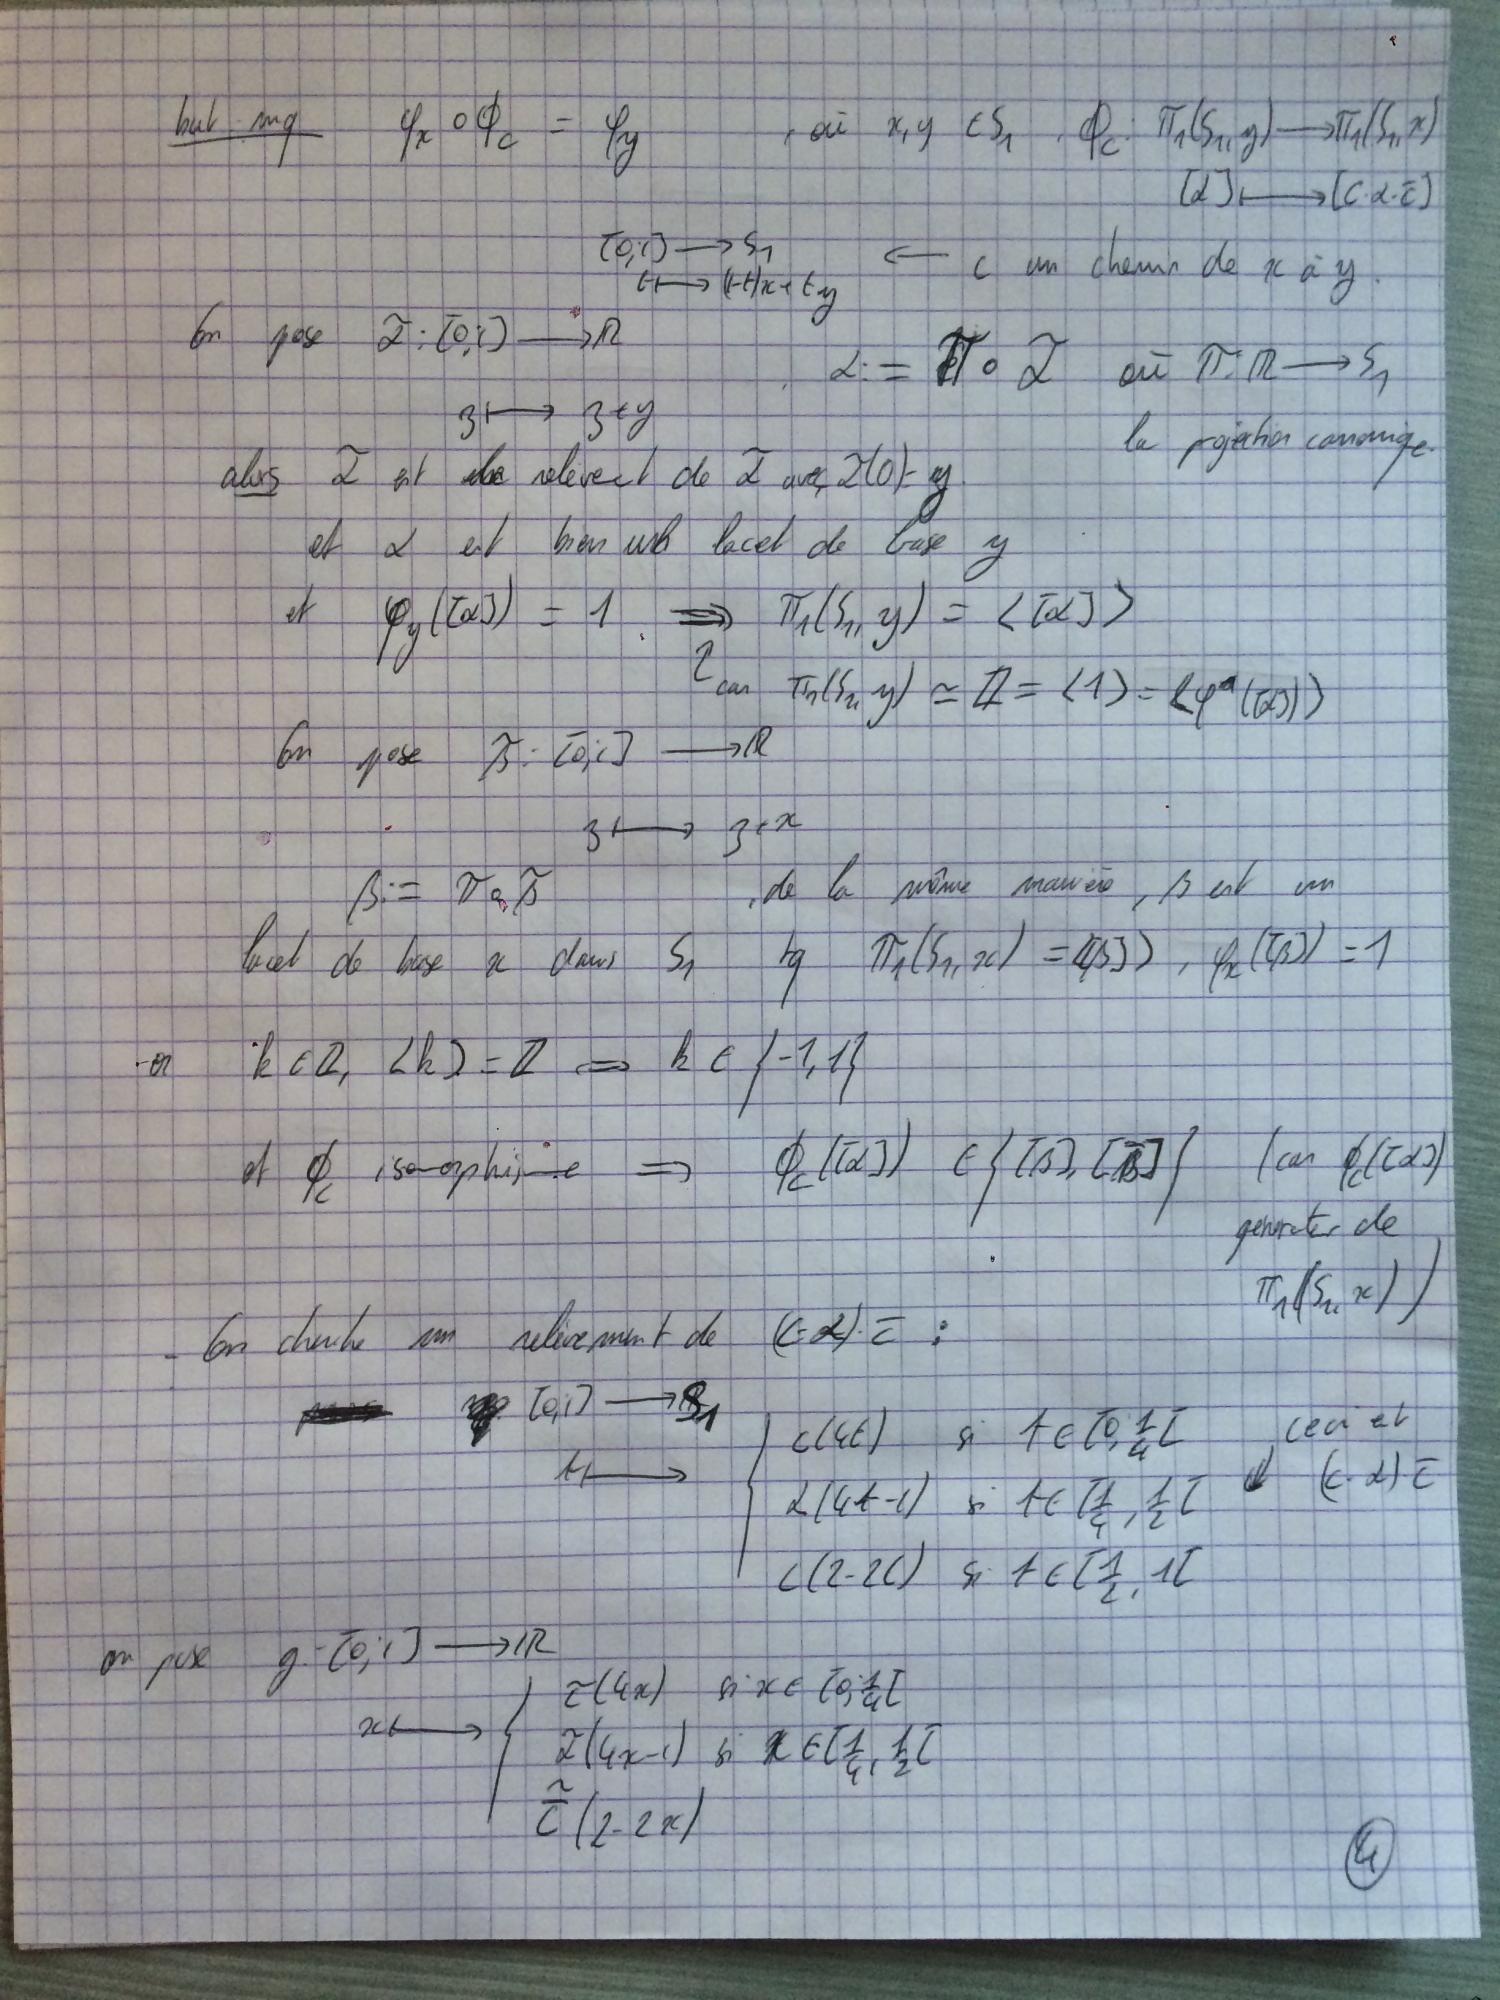 but mq φ_x ∘ ϕ_c = φ_y , où x, y ∈ S_1 , ϕ_c : π_1(S_1, y) ⟶ π_1(S_1, x)
[α] ⟼ [c·α·c̄]
[0,1] ⟶ S_1 ⟵ c un chemin de x à y.
t ⟼ (1-t)x + ty
On pose α̃ : [0,1] ⟶ ℝ
α := π ∘ α̃ où π : ℝ ⟶ S_1
z ⟼ z + y
la projection canonique.
alors α̃ est relèvent de α̃ avec α̃(0) = y
et α est bien un lacet de base y
et φ_y([α]) = 1 ⟹ π_1(S_1, y) = ⟨[α]⟩
car π_1(S_1, y) ≃ ℤ = ⟨1⟩ = ⟨φ([α])⟩
On pose β̃ : [0,1] ⟶ ℝ
z ⟼ z + x
β := π ∘ β̃ , de la même manière, β est un
lacet de base x dans S_1 tq π_1(S_1, x) = ⟨[β]⟩, φ_x([β]) = 1
- or k ∈ ℤ, ⟨k⟩ = ℤ ⟹ k ∈ {-1, 1}
et ϕ_c isomorphisme ⟹ ϕ_c([α]) ∈ {[β], [β̄]} (car ϕ_c([α])
générateur de
π_1(S_1, x))
- On cherche un relèvement de (c·α)·c̄ :
[0,1] ⟶ S_1
c(4t) si t ∈ [0, 1/4[ ceci est
t ⟼ { α(4t-1) si t ∈ [1/4, 1/2[ ↓ (c·α)·c̄
c(2-2t) si t ∈ [1/2, 1[
on pose g : [0,1] ⟶ ℝ
c̃(4x) si x ∈ [0, 1/4[
x ⟼ { α̃(4x-1) si x ∈ [1/4, 1/2[
c̄̃(2-2x)
4